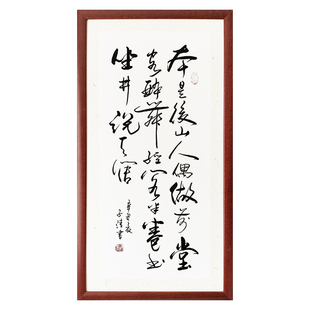 本是後山人偶做前堂
客醉舞經閣半卷书
坐井說天闊
書